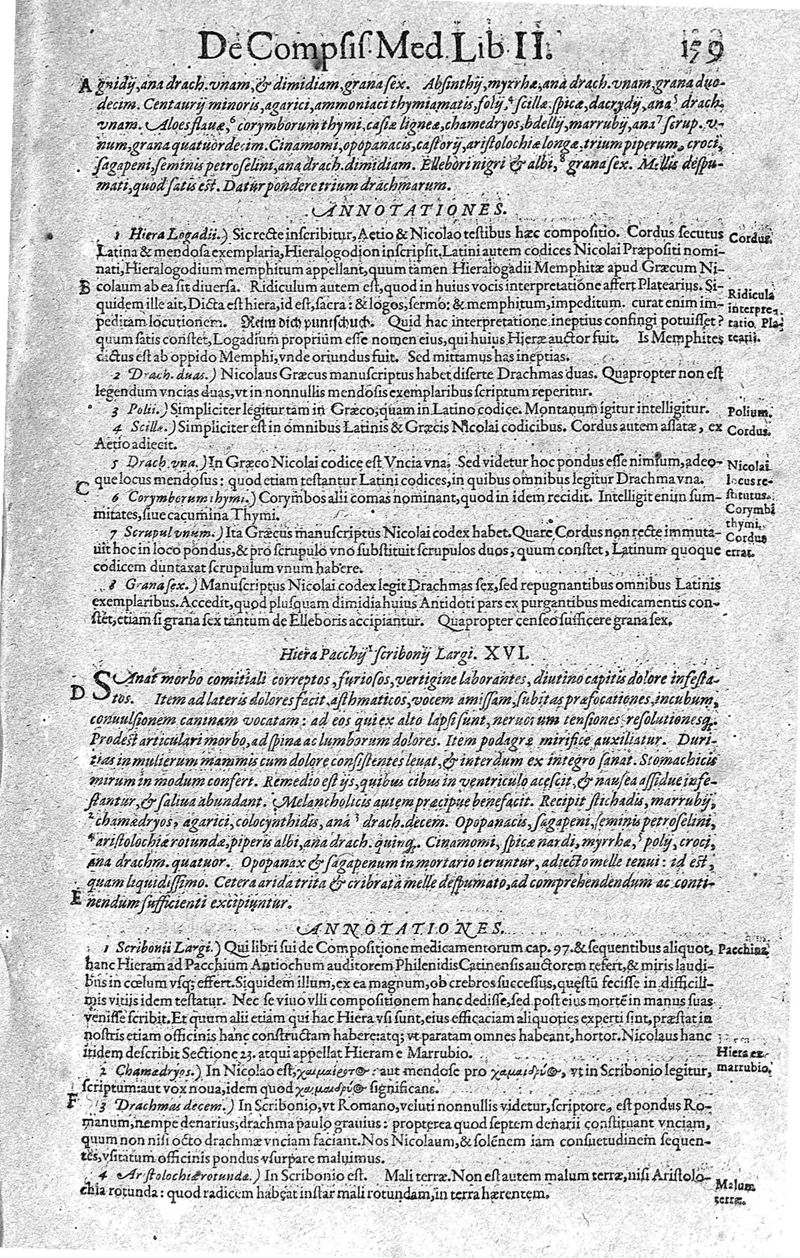 De Compsis Med. Lib II. 159
A gnidij, ana drach. vnam, & dimidiam, grana sex. Absinthij, myrrhæ, ana drach. vnam, grana duo-
decim. Centaurij minoris, agarici, ammoniaci thymiamatis, folij, ⁴ scillæ, spicæ, dacrydij, ana ⁵ drach.
vnam. Aloes flauæ, ⁶ corymborum thymi, casiæ ligneæ, chamedryos, bdellij, marrubij, ana ⁷ scrup. v-
num, grana quatuordecim. Cinamomi, opopanacis, castorij, aristolochiæ longæ, trium piperum, croci,
sagapeni, seminis petroselini, ana drach. dimidiam. Ellebori nigri & albi, ⁸ grana sex. Mellis despu-
mati, quod satis est. Datur pondere trium drachmarum.
ANNOTATIONES.
1 Hiera Logadii.) Sic recte inscribitur, Aetio & Nicolao testibus hæc compositio. Cordus secutus
Cordus.
Latina & mendosa exemplaria, Hieralogodion inscripsit. Latini autem codices Nicolai Præpositi nomi-
nati, Hieralogodium memphitum appellant, quum tamen Hieralogadii Memphitæ apud Græcum Ni-
B colaum ab ea sit diuersa. Ridiculum autem est, quod in huius vocis interpretatione affert Platearius. Si-
quidem ille ait, Dicta est hiera, id est, sacra: & logos, sermo: & memphitum, impeditum. curat enim im-
Ridicula
interpre-
tatio Pla-
tearii.
peditam locutionem. Reim dich puntschuch. Quid hac interpretatione ineptius confingi potuisset?
quum satis constet, Logadium proprium esse nomen eius, qui huius Hieræ auctor fuit. Is Memphites
dictus est ab oppido Memphi, vnde oriundus fuit. Sed mittamus has ineptias.
2 Drach. duas.) Nicolaus Græcus manuscriptus habet diserte Drachmas duas. Quapropter non est
legendum vncias duas, vt in nonnullis mendosis exemplaribus scriptum reperitur.
3 Polii.) Simpliciter legitur tam in Græco, quam in Latino codice. Montanum igitur intelligitur.
Polium.
4 Scillæ.) Simpliciter est in omnibus Latinis & Græcis Nicolai codicibus. Cordus autem assatæ, ex
Cordus.
Aetio adiecit.
5 Drach. vna.) In Græco Nicolai codice est Vncia vna. Sed videtur hoc pondus esse nimium, adeo-
Nicolai
locus re-
stitutus.
C que locus mendosus: quod etiam testantur Latini codices, in quibus omnibus legitur Drachma vna.
6 Corymborum thymi.) Corymbos alii comas nominant, quod in idem recidit. Intelligit enim sum-
Corymbi
thymi.
mitates, siue cacumina Thymi.
7 Scrupul vnum.) Ita Græcus manuscriptus Nicolai codex habet. Quare Cordus non recte immuta-
Cordus
errat.
uit hoc in loco pondus, & pro scrupulo vno substituit scrupulos duos, quum constet, Latinum quoque
codicem duntaxat scrupulum vnum habere.
8 Grana sex.) Manuscriptus Nicolai codex legit Drachmas sex, sed repugnantibus omnibus Latinis
exemplaribus. Accedit, quod plusquam dimidia huius Antidoti pars ex purgantibus medicamentis con-
stet, etiam si grana sex tantum de Elleboris accipiantur. Quapropter censeo sufficere grana sex.
Hiera Pacchij ¹ scribonij Largi. XVI.
D SAnat morbo comitiali correptos, furiosos, vertigine laborantes, diutino capitis dolore infesta-
tos. Item ad lateris dolores facit, asthmaticos, vocem amissam, subitas præfocationes, incubum,
conuulsionem caninam vocatam: ad eos qui ex alto lapsi sunt, neruorum tensiones, resolutionesq;.
Prodest articulari morbo, ad spinæ ac lumborum dolores. Item podagræ mirifice auxiliatur. Duri-
tias in mulierum mammis cum dolore consistentes leuat, & interdum ex integro sanat. Stomachicis
mirum in modum confert. Remedio est ijs, quibus cibus in ventriculo acescit, & nausea assidue infe-
stantur, & saliua abundant. Melancholicis autem præcipue benefacit. Recipit stichadis, marrubij,
² chamædryos, agarici, colocynthidis, ana ³ drach. decem. Opopanacis, sagapeni, seminis petroselini,
⁴ aristolochiæ rotundæ, piperis albi, ana drach. quinq;. Cinamomi, spicæ nardi, myrrhæ, ⁵ polij, croci,
ana drachm. quatuor. Opopanax & sagapenum in mortario teruntur, adiecto melle tenui: id est,
quam liquidissimo. Cetera arida trita & cribrata melle despumato, ad comprehendendum ac conti-
E nendum sufficienti excipiuntur.
ANNOTATIONES.
1 Scribonii Largi.) Qui libri sui de Compositione medicamentorum cap. 97. & sequentibus aliquot,
Pacchina
hanc Hieram ad Pacchium Antiochum auditorem Philenidis Catinensis auctorem refert, & miris laudi-
bus in cœlum vsq; effert. Siquidem illum, ex ea magnum, ob crebros successus, quęstū fecisse in difficili-
mis vitijs idem testatur. Nec se viuo vlli compositionem hanc dedisse, sed post eius mortē in manus suas
venisse scribit. Et quum alii etiam qui hac Hiera vsi sunt, eius efficaciam aliquoties experti sint, præstat in
nostris etiam officinis hanc constructam habere: atq; vt paratam omnes habeant, hortor. Nicolaus hanc
itidem describit Sectione 23. atqui appellat Hieram e Marrubio.
Hiera ex
marrubio.
2 Chamædryos.) In Nicolao est, χαμαίερυτος: aut mendose pro χαμαιδρύος, vt in Scribonio legitur,
scriptum: aut vox noua, idem quod χαμαιδρύος significans.
F 3 Drachmas decem.) In Scribonio, vt Romano, veluti nonnullis videtur, scriptore, est pondus Ro-
manum, nempe denarius, drachma paulo grauius: propterea quod septem denarii constituant vnciam,
quum non nisi octo drachmæ vnciam faciant. Nos Nicolaum, & solēnem iam consuetudinem sequen-
tes, vsitatum officinis pondus vsurpare maluimus.
4 Aristolochiæ rotundæ.) In Scribonio est. Mali terræ. Non est autem malum terræ, nisi Aristolo-
Malum
terræ.
chia rotunda: quod radicem habeat instar mali rotundam, in terra hærentem.